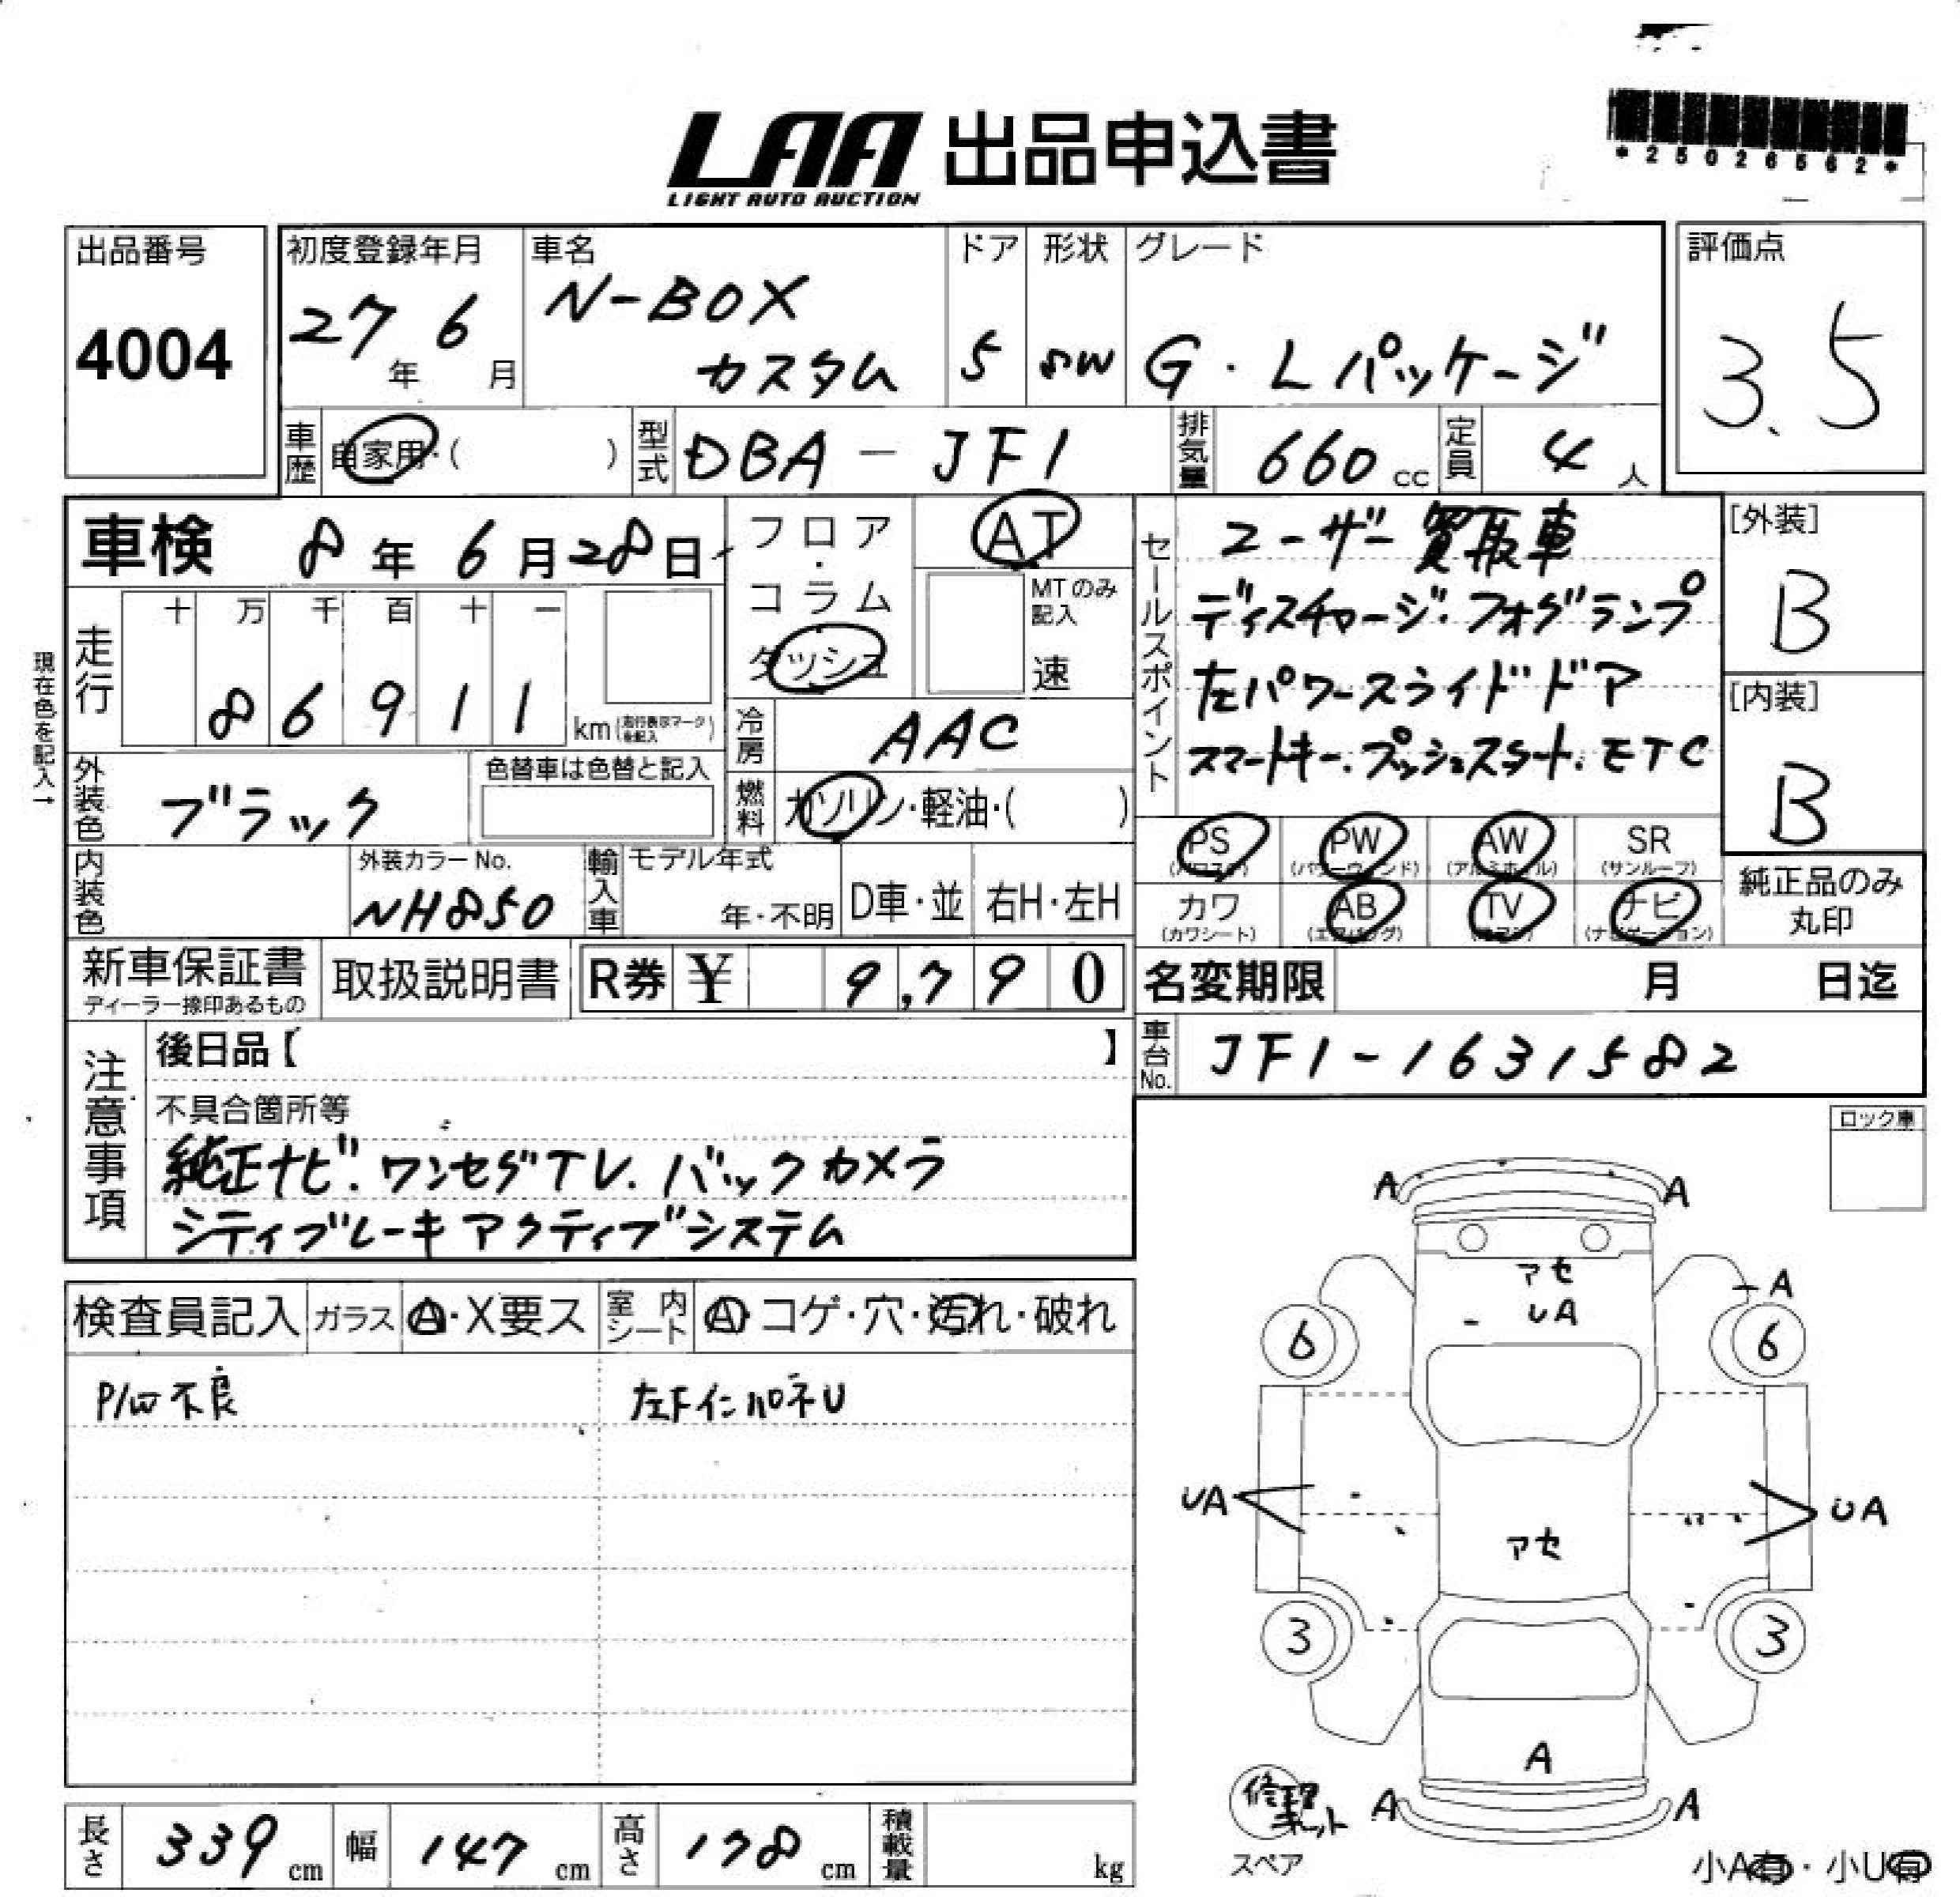 LAA 出品申込書
LIGHT AUTO AUCTION
*25026562*
出品番号
4004
初度登録年月
27年 6月
車名
N-BOX
カスタム
ドア
5
形状
SW
グレード
G・Lパッケージ
評価点
3.5
車歴
自家用・( )
型式
DBA-JF1
排気量
660 cc
定員
4人
車検 8年 6月 28日
フロア・コラム
ダッシュ
AT
MTのみ記入
速
走行
十 万 千 百 十 一
8 6 9 1 1
km(走行表示マークを記入)
現在色を記入→
冷房
AAC
燃料
ガソリン・軽油・( )
外装色
ブラック
色替車は色替と記入
内装色
外装カラーNo.
NH850
輸入車
モデル年式
年・不明
D車・並
右H・左H
セールスポイント
ユーザー買取車
ディスチャージ・フォグランプ
左パワースライドドア
スマートキー・プッシュスタート・ETC
[外装]
B
[内装]
B
PS
PW
(パワーウィンド)
AW
(アルミホイル)
SR
(サンルーフ)
カワ
(カワシート)
AB
(エアバッグ)
TV
ナビ
(ナビゲーション)
純正品のみ
丸印
新車保証書
ディーラー捺印あるもの
取扱説明書
R券 ¥ 9,790
名変期限 月 日迄
車台No.
JF1-1631582
注意事項
後日品【 】
不具合箇所等
純正ナビ.ワンセグTV.バックカメラ
シティブレーキアクティブシステム
ロック車
検査員記入
ガラス
A・X要ス
室内シート
A・コゲ・穴・汚れ・破れ
P/W不良
左FインパネU
A A
アセ
UA
A
6 6
UA UA
アセ
3 3
A
A A
修理キット
スペア
小A有・小U有
長さ
339 cm
幅
147 cm
高さ
178 cm
積載量
kg